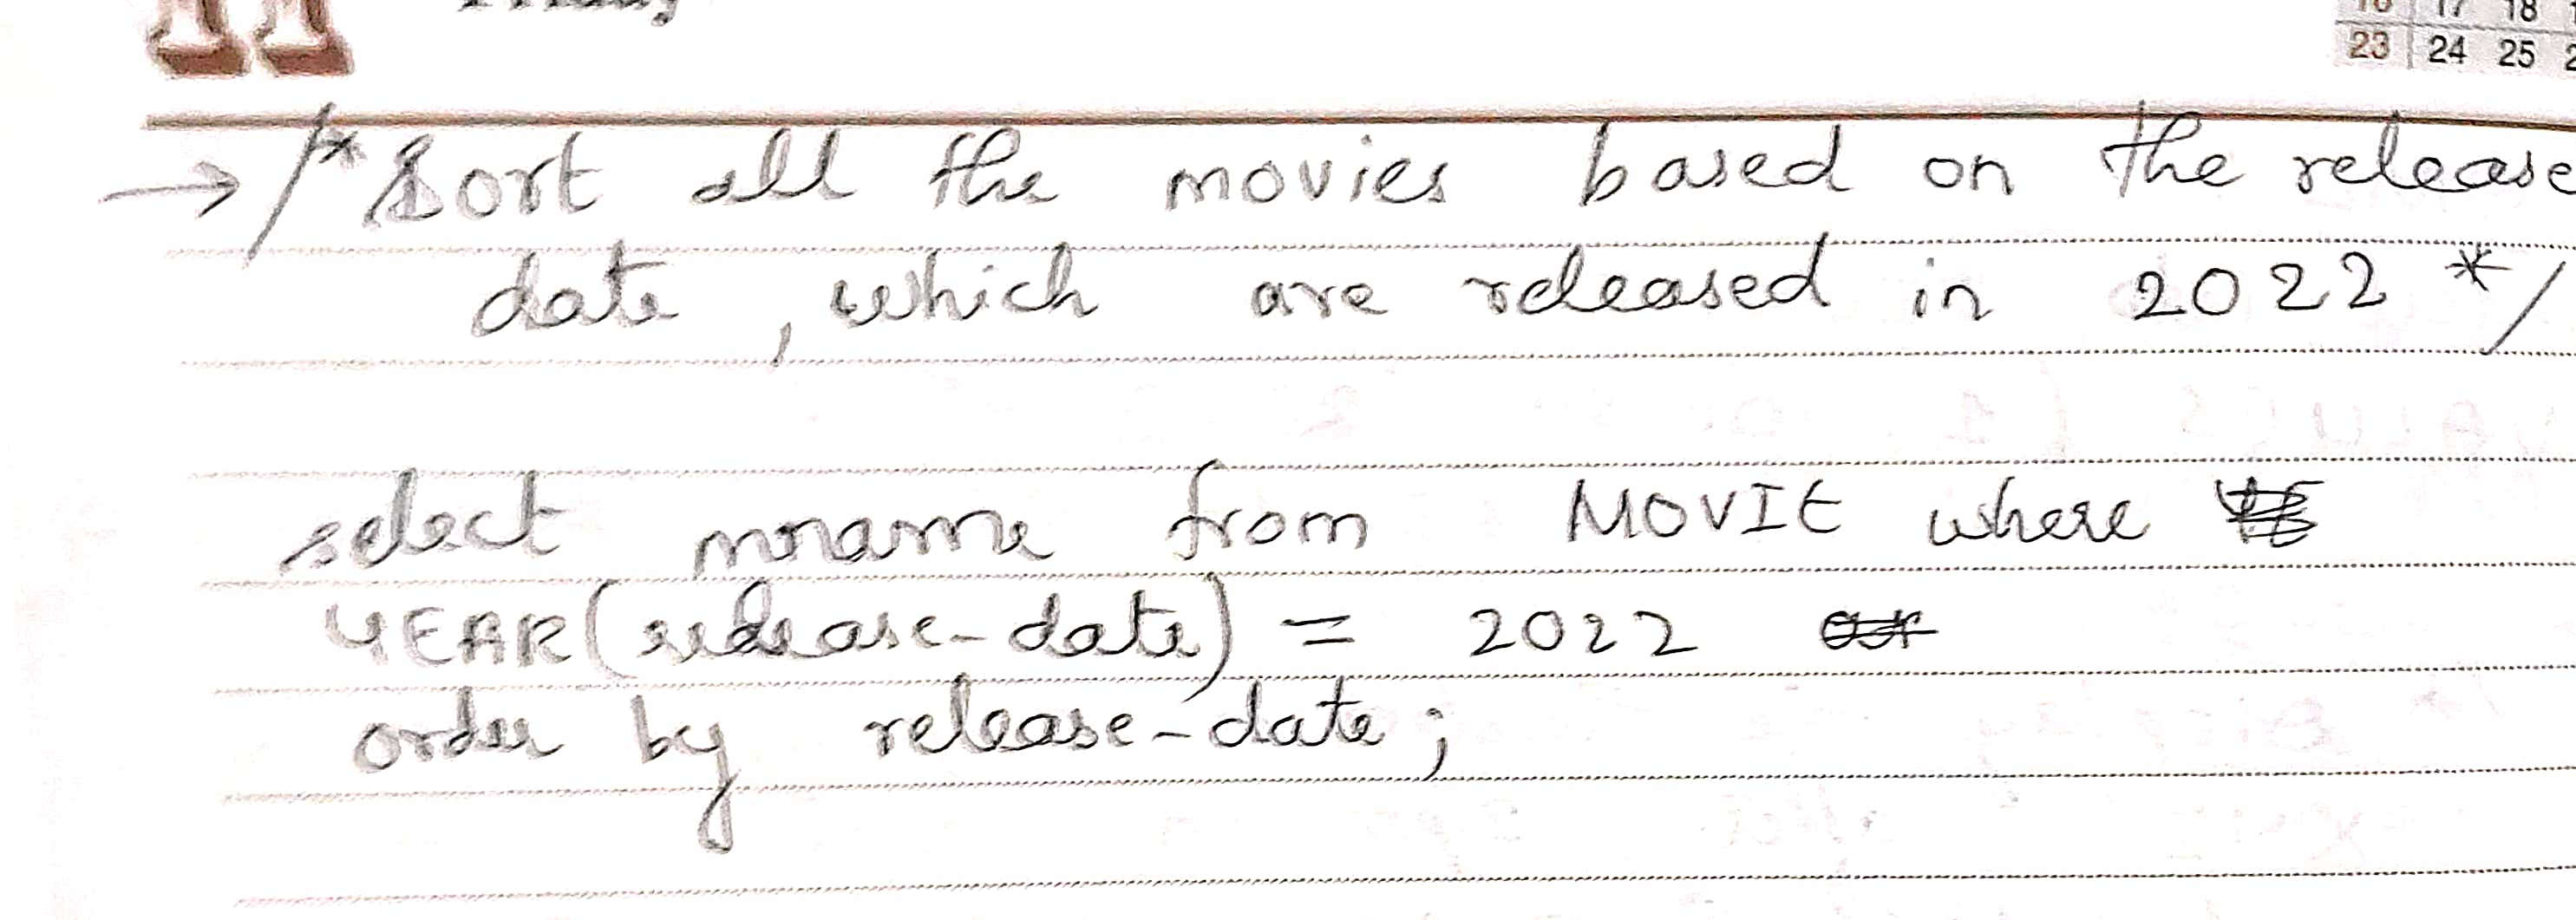 11
16 17 18
23 24 25
→ /* Sort all the movies based on the release
date, which are released in 2022 */
select mname from MOVIE where
YEAR(release-date) = 2022
order by release-date;